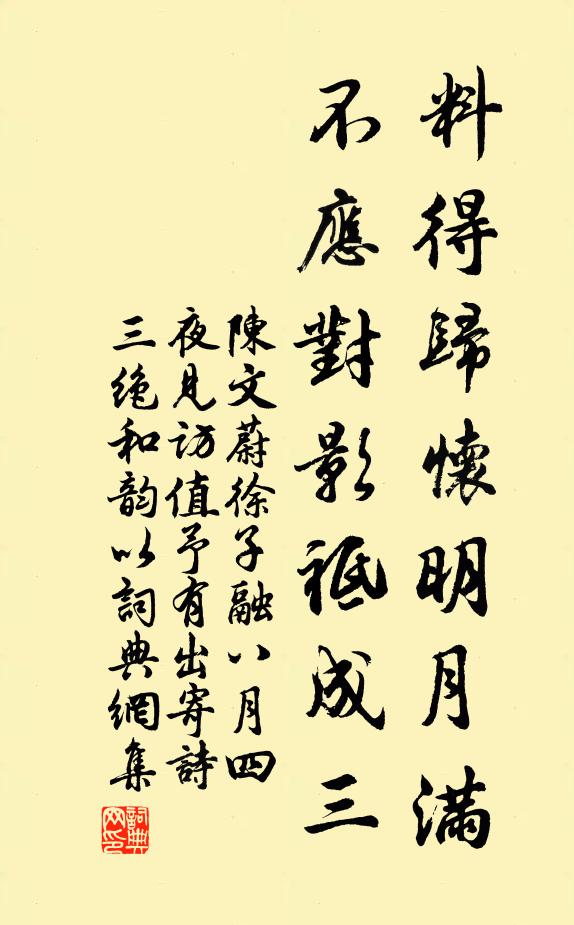 料得歸懷明月滿
不應對影祗成三
陳文蔚徐子融八月四
夜見访值予有出寄詩
三绝和韵以詞典網集
詞典網印